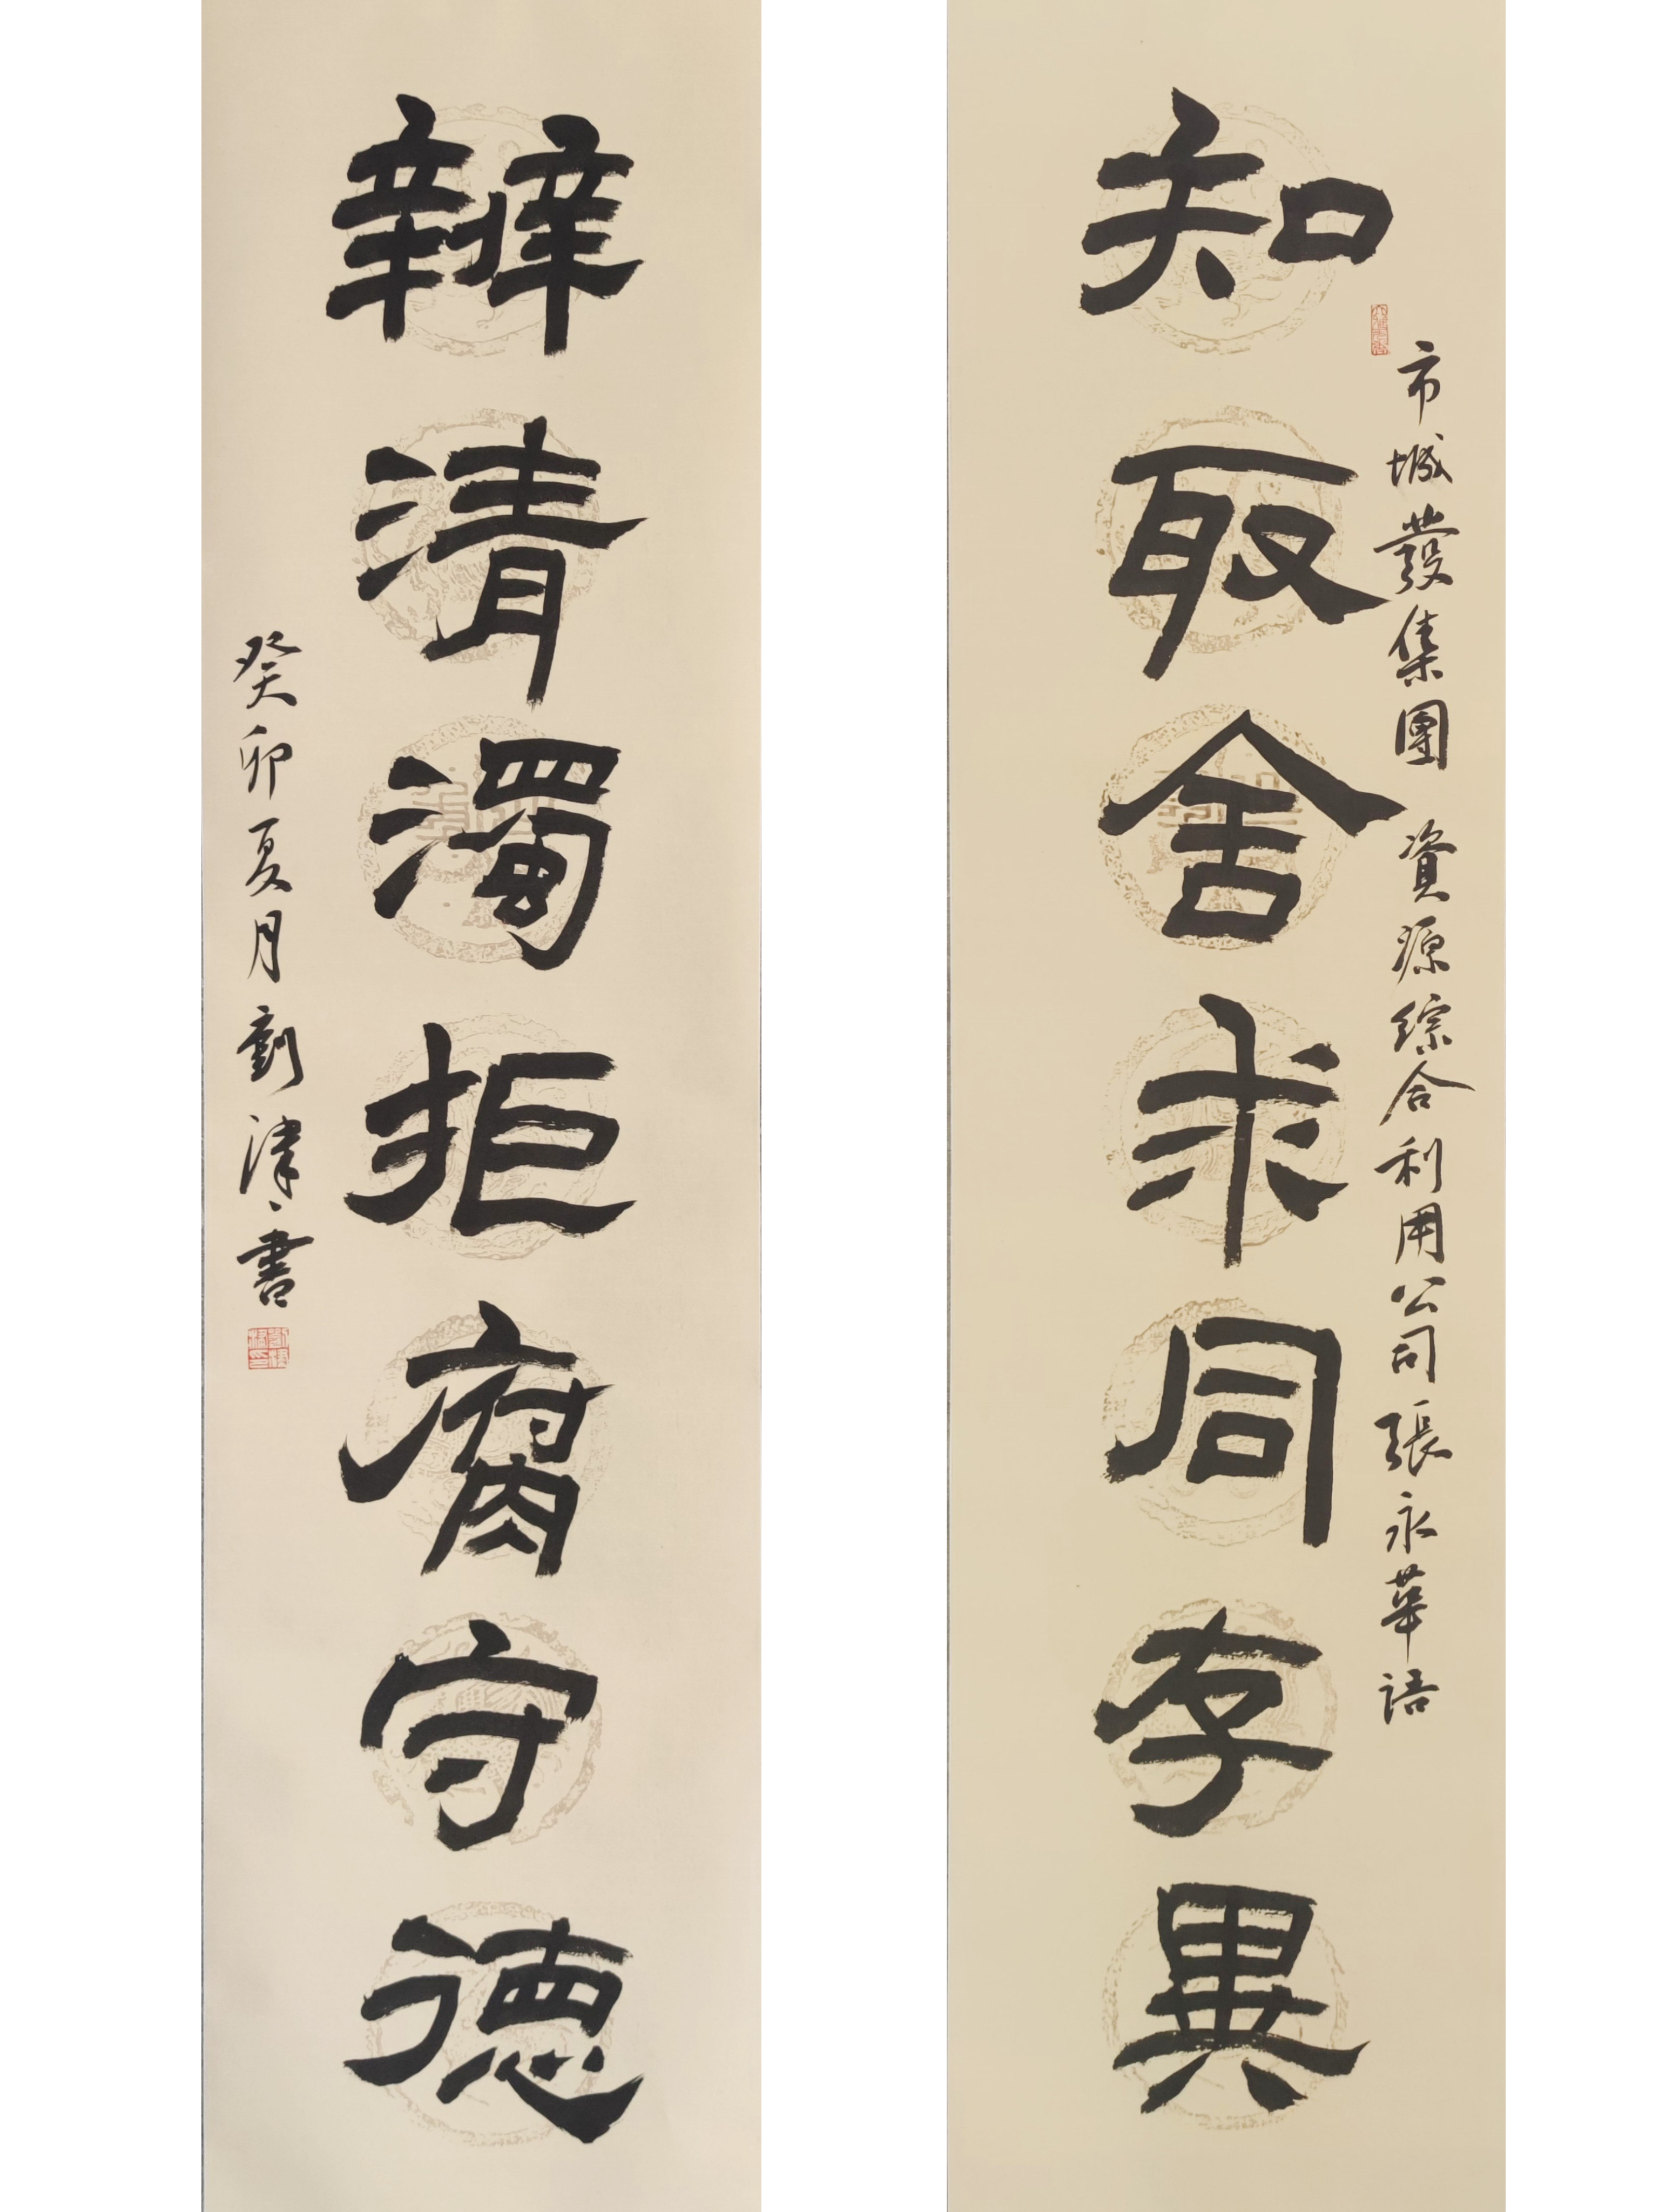 知取舍求同存異
市城發集團 資源综合利用公司張永華语
辨清濁拒腐守德
癸卯夏月劉津書